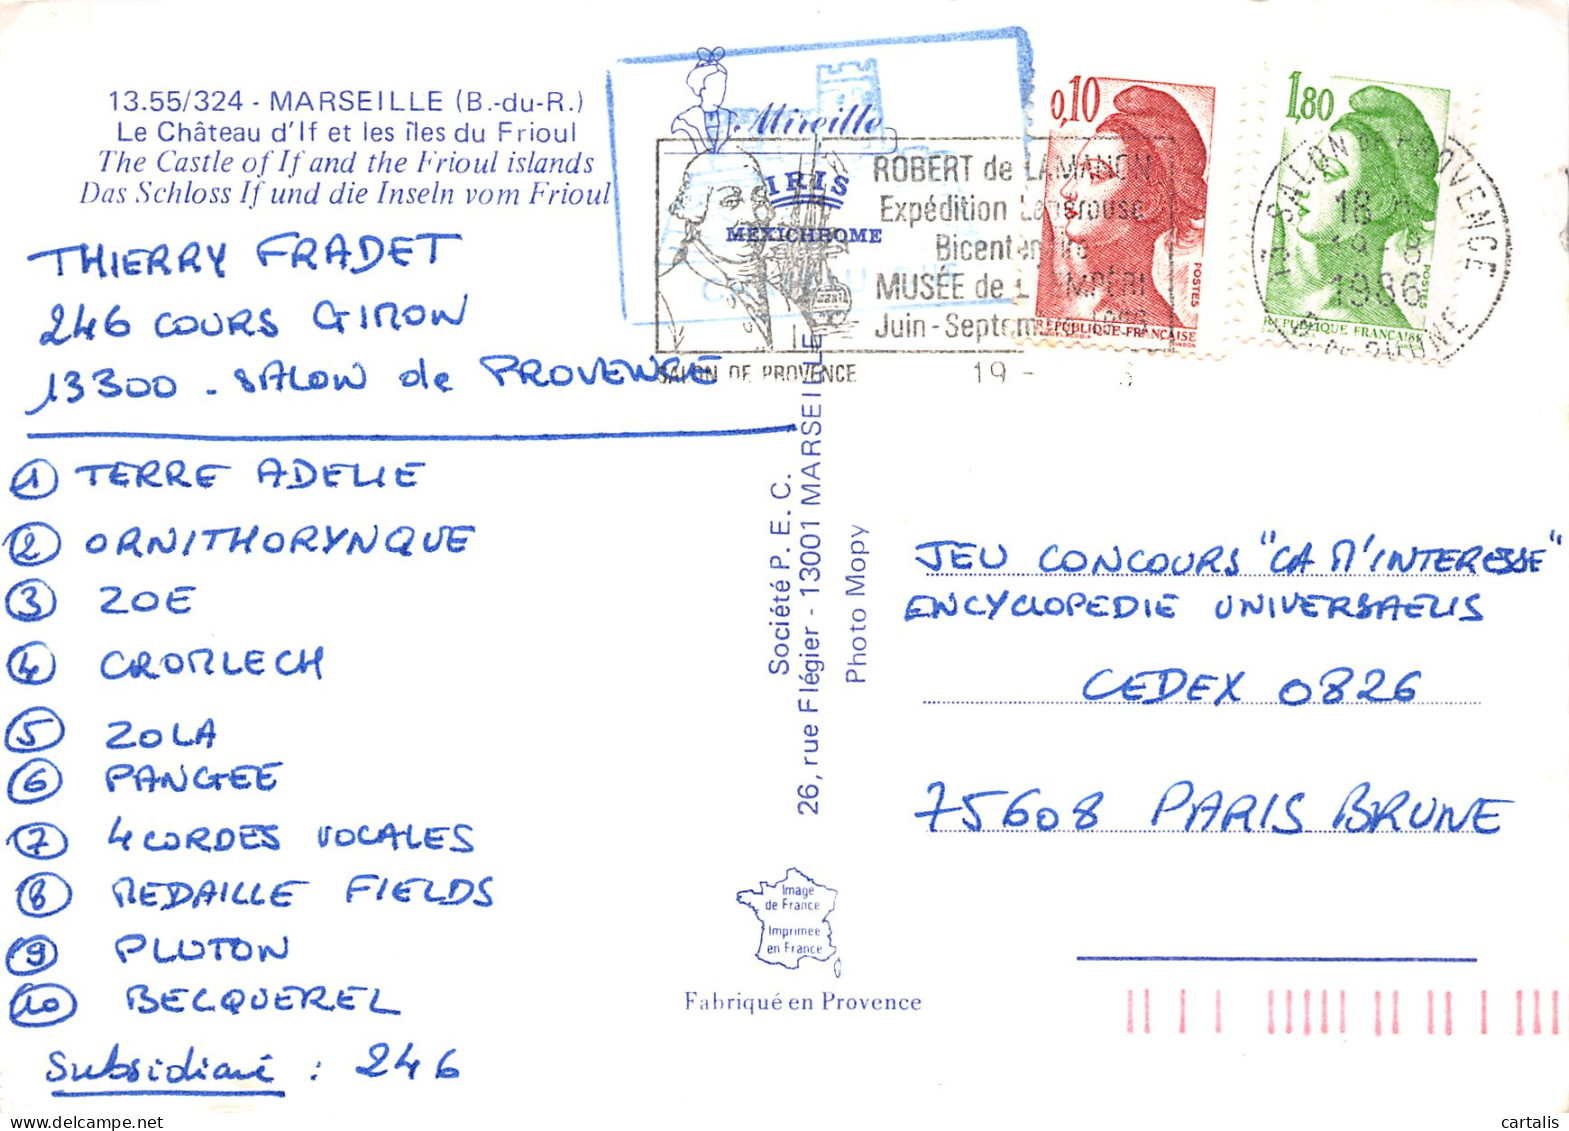 13.55/324 - MARSEILLE (B.-du-R.)
Le Château d'If et les îles du Frioul
The Castle of If and the Frioul islands
Das Schloss If und die Inseln vom Frioul
THIERRY FRADET
246 COURS GIMON
13300 - SALON de PROVENCE
① TERRE ADELIE
② ORNITHORYNQUE
③ ZOE
④ CROMLECH
⑤ ZOLA
⑥ PANGEE
⑦ 4 CORDES VOCALES
⑧ MEDAILLE FIELDS
⑨ PLUTON
⑩ BECQUEREL
Subsidiaire : 246
Mireille
IRIS
MEXICHROME
ROBERT de LAMANON
Expédition Laperouse
Bicentenaire
MUSÉE de L'EMPÉRI
Juin - Septembre
SALON DE PROVENCE
19 -
0,10
POSTES
REPUBLIQUE FRANÇAISE
1,80
POSTES
REPUBLIQUE FRANÇAISE
13 SALON DE PROVENCE
18 H
19 - 8
1986
Société P. E. C.
26, rue Flégier - 13001 MARSEILLE
Photo Mopy
Image
de France
Imprimée
en France
Fabriqué en Provence
JEU CONCOURS "CA M'INTERESSE"
ENCYCLOPEDIE UNIVERSAELIS
CEDEX 0826
75608 PARIS BRUNE
cartalis